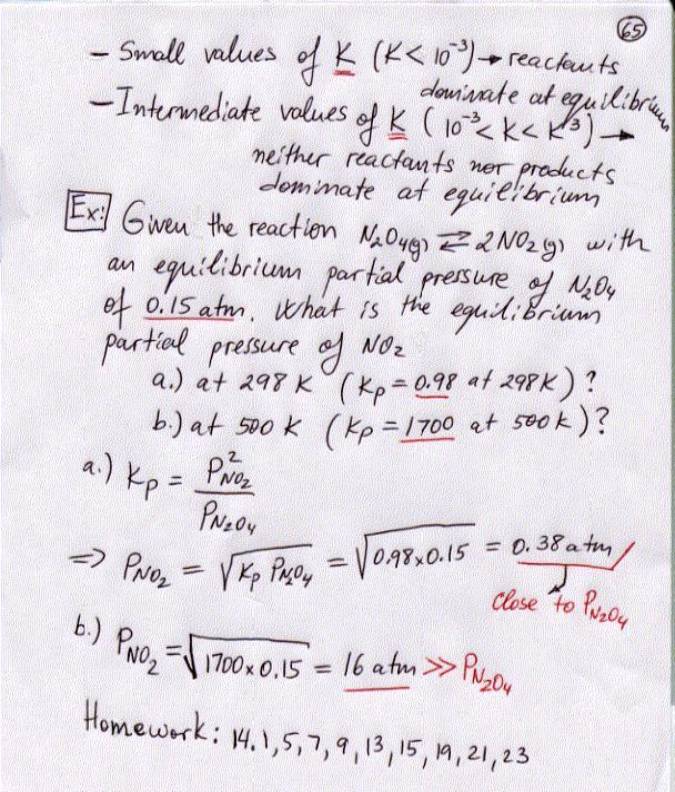 65
- Small values of K (K < 10⁻³) → reactants
dominate at equilibrium
- Intermediate values of K (10⁻³ < K < K³) →
neither reactants nor products
dominate at equilibrium
Ex: Given the reaction N₂O₄(g) ⇄ 2NO₂(g) with
an equilibrium partial pressure of N₂O₄
of 0.15 atm. What is the equilibrium
partial pressure of NO₂
a.) at 298 K (Kp = 0.98 at 298K)?
b.) at 500 K (Kp = 1700 at 500K)?
a.) Kp = P²NO₂ / PN₂O₄
=> PNO₂ = √(Kp PN₂O₄) = √(0.98x0.15) = 0.38 atm
Close to PN₂O₄
b.) PNO₂ = √(1700x0.15) = 16 atm >> PN₂O₄
Homework: 14.1,5,7,9,13,15,19,21,23